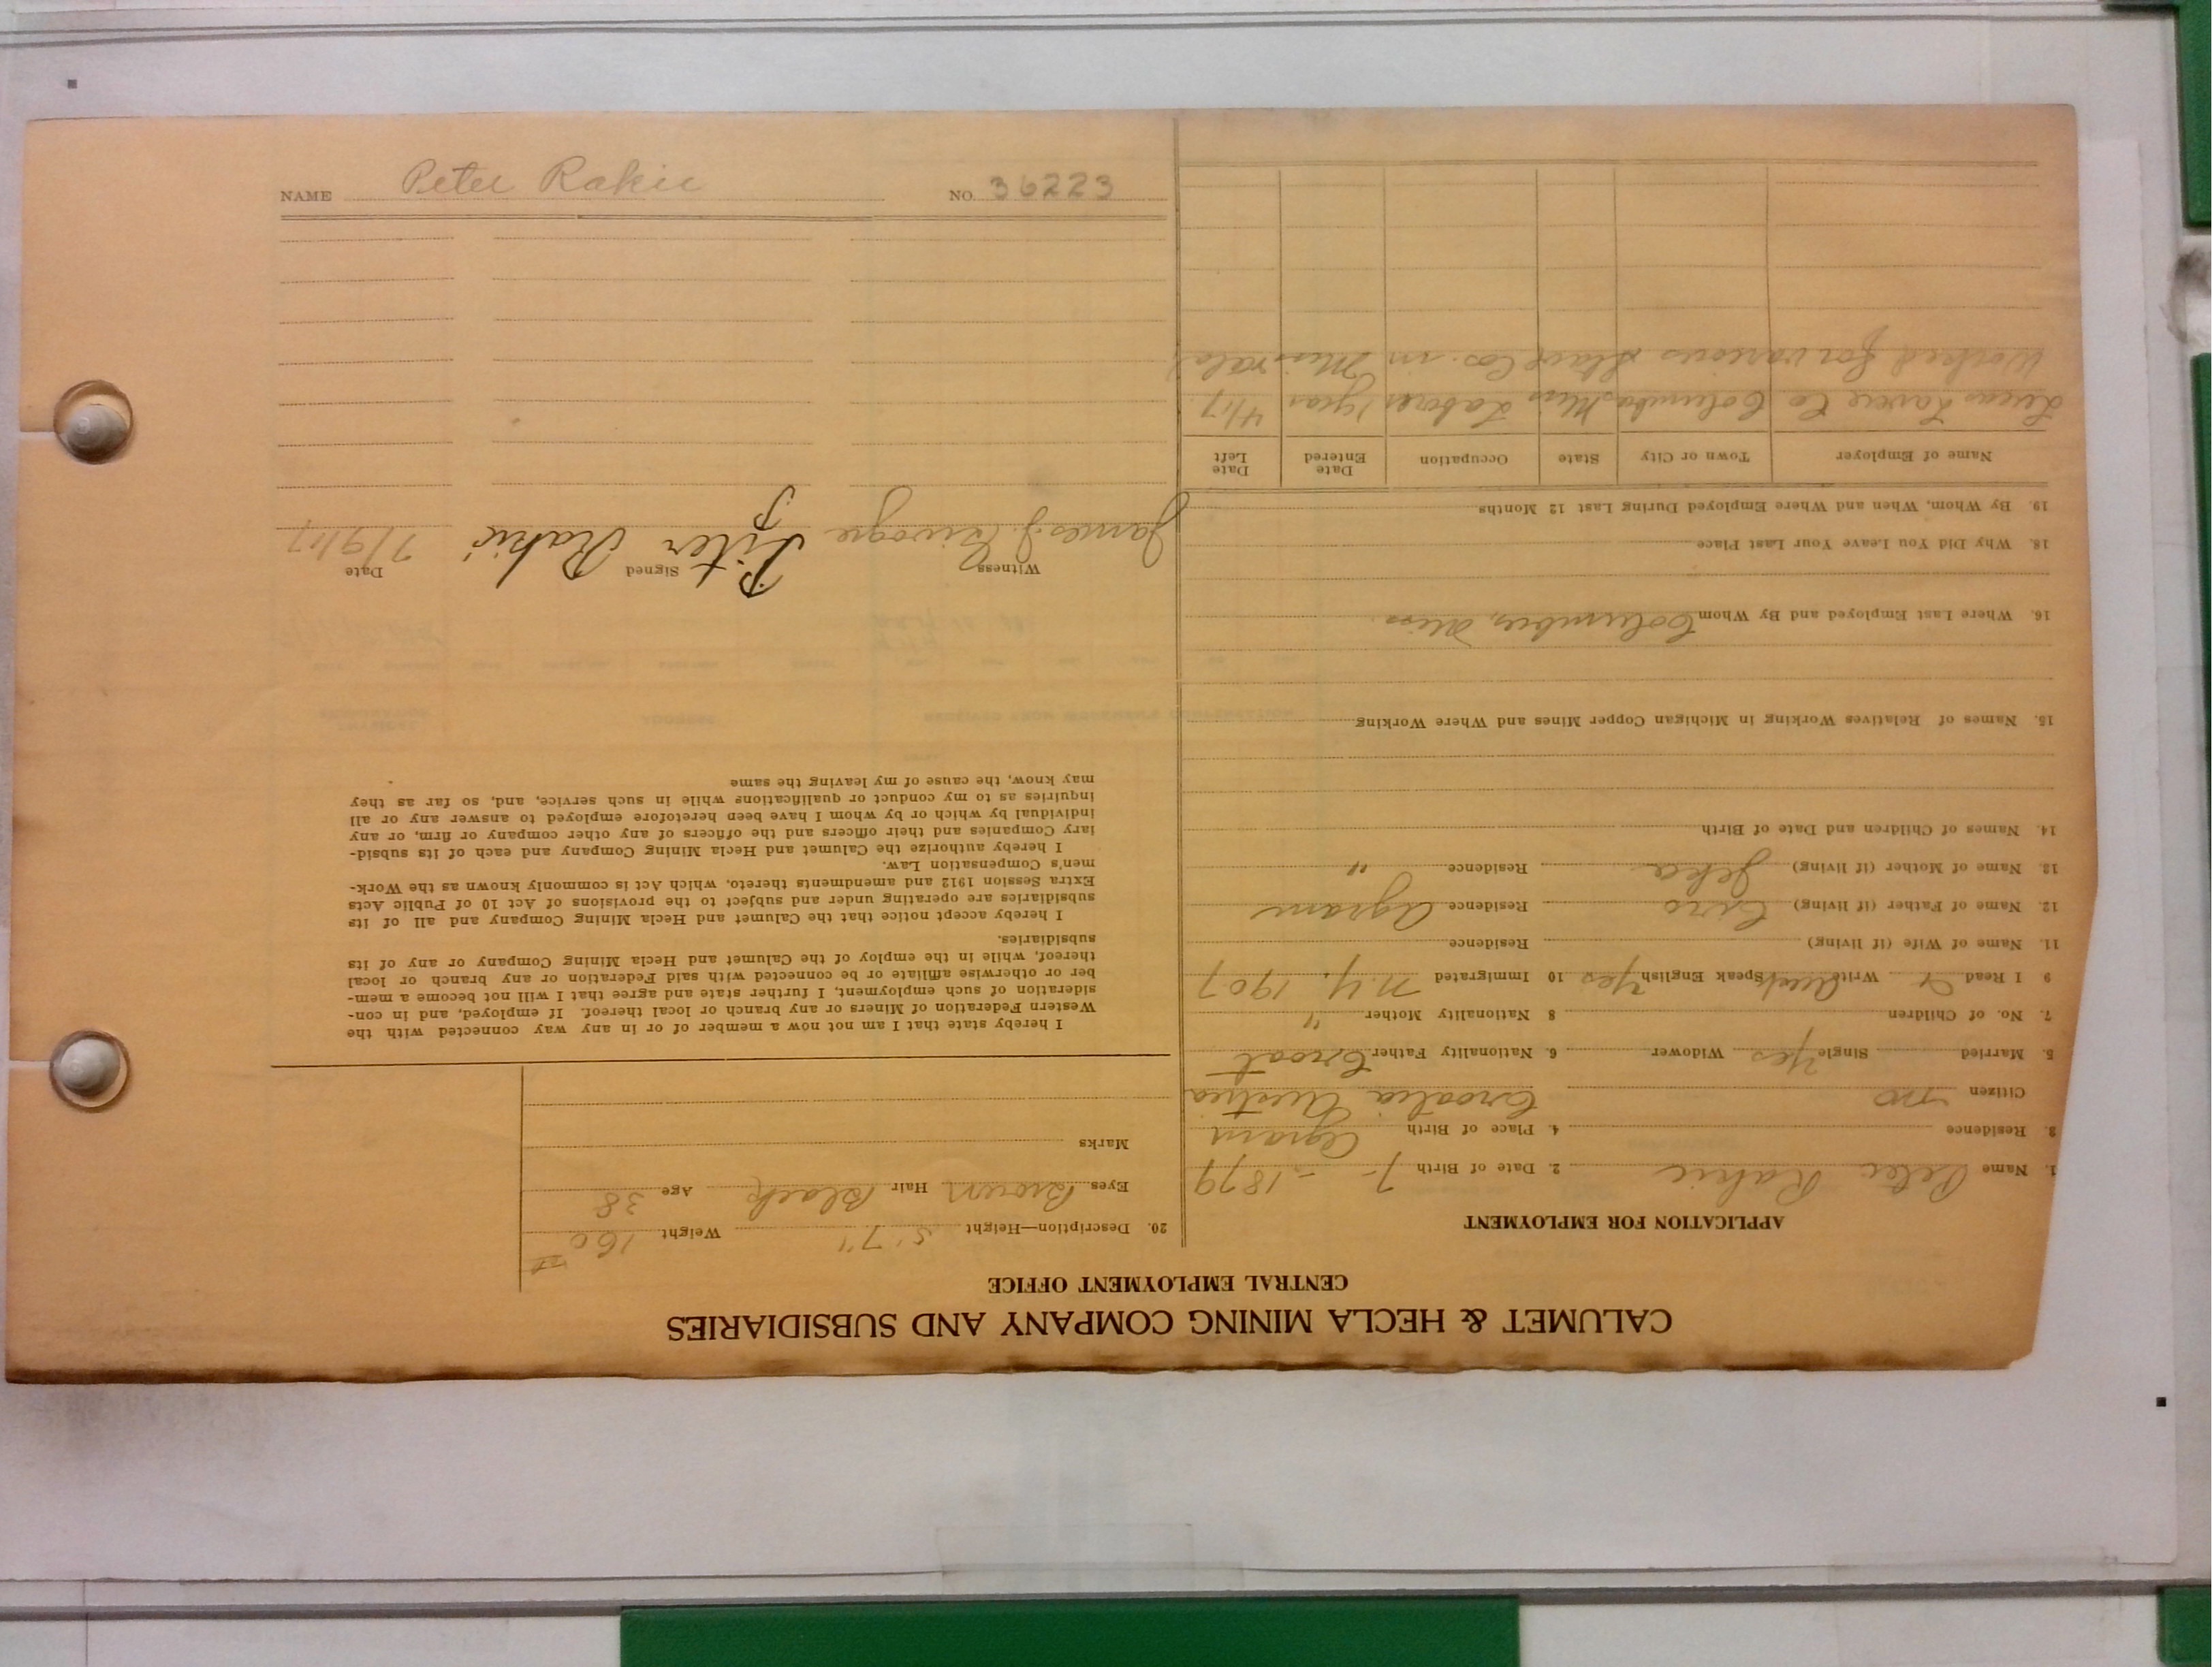 CALUMET & HECLA MINING COMPANY AND SUBSIDIARIES
CENTRAL EMPLOYMENT OFFICE
APPLICATION FOR EMPLOYMENT
1. Name Peter Rakic 2. Date of Birth 7 - 1879
3. Residence 4. Place of Birth Agram
Citizen no Croatia Austria
5. Married Single Yes Widower 6. Nationality Father Croat
7. No. of Children 8 Nationality Mother "
9 I Read Write Speak English Yes 10 Immigrated N.Y. 1907
11. Name of Wife (if living) Residence
12. Name of Father (if living) Residence Agram
13. Name of Mother (if living) Jeka Residence "
14. Names of Children and Date of Birth
15. Names of Relatives Working in Michigan Copper Mines and Where Working
16. Where Last Employed and By Whom Columbus, Miss.
18. Why Did You Leave Your Last Place
19. By Whom, When and Where Employed During Last 12 Months
Name of Employer Town or City State Occupation Date Entered Date Left
Co Columbus Miss Laborer 1 year 4/17
Worked for various Cos. in
20. Description—Height 5' 7" Weight 160 #
Eyes Brown Hair Black Age 38
Marks
I hereby state that I am not now a member of or in any way connected with the
Western Federation of Miners or any branch or local thereof. If employed, and in con-
sideration of such employment, I further state and agree that I will not become a mem-
ber or otherwise affiliate or be connected with said Federation or any branch or local
thereof, while in the employ of the Calumet and Hecla Mining Company or any of its
subsidiaries.
I hereby accept notice that the Calumet and Hecla Mining Company and all of its
subsidiaries are operating under and subject to the provisions of Act 10 of Public Acts
Extra Session 1912 and amendments thereto, which Act is commonly known as the Work-
men's Compensation Law.
I hereby authorize the Calumet and Hecla Mining Company and each of its subsid-
iary Companies and their officers and the officers of any other company or firm, or any
individual by which or by whom I have been heretofore employed to answer any or all
inquiries as to my conduct or qualifications while in such service, and, so far as they
may know, the cause of my leaving the same
Witness Signed Date
James J. Piter Rakić 7/9/17
NAME Peter Rakic NO. 36223